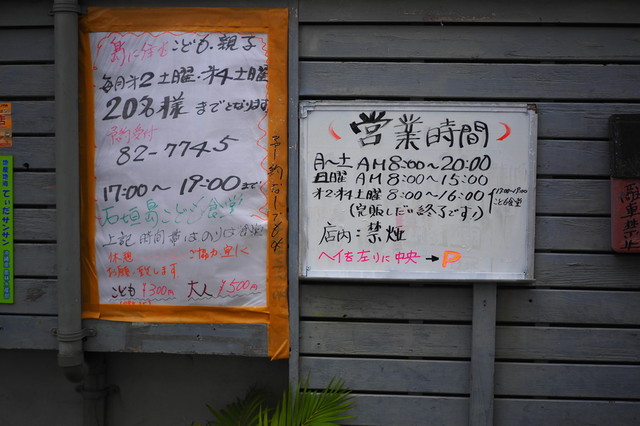 こども、親子
毎月オ2土曜、オ4土曜
20名様までとなります
予約受付
82-7745
17:00〜19:00まで
石垣島こども食堂
上記時間帯はのりば食堂
休憩 ご協力宜しく
お願い致します
こども ¥300円 大人 ¥500円
予約なしでも
営業時間
月〜土 AM 8:00〜20:00
日曜 AM 8:00〜15:00
オ2・オ4土曜 8:00〜16:00
17:00〜19:00
こども食堂
(完販しだい終了です!)
店内:禁煙
ヘイを左りに中央→P
てぃだサンサン